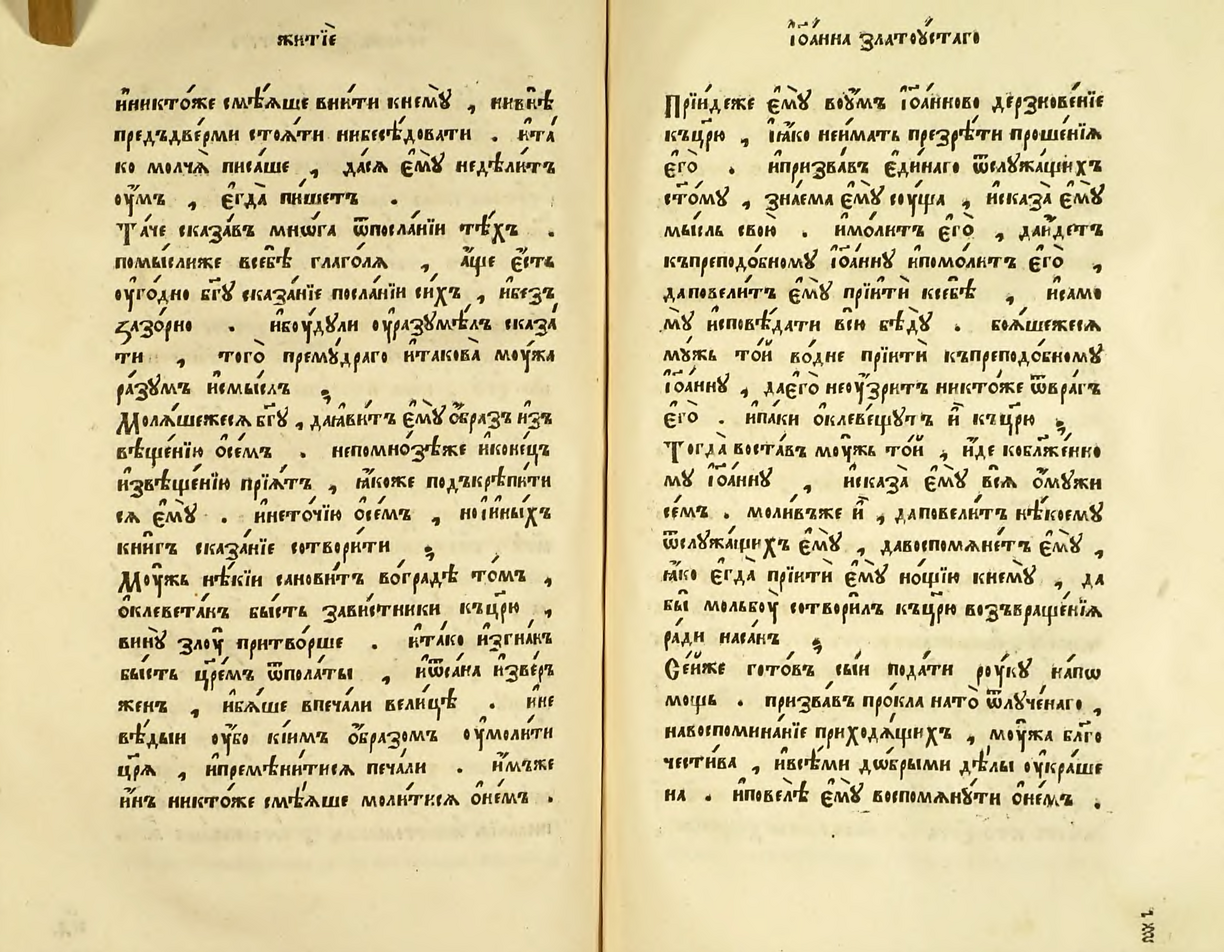 житїѐ
и҆никто́же смѣ́ѧше вни́ти кнемꙋ̀ , нивнѣ̀
предъдве́рми стоѧ́ти нибесѣ́довати . и҆та́
ко молчѧ̀ писа́ше , даса́ є҆мꙋ̀ недѣли́тъ
оу҆́мъ , є҆гда̀ пи́шетъ .
Та́че сказа́въ мнѡ́га ѿпосла́нїи тѣ́хъ .
помы́слиже всебѣ̀ глаго́лѧ , а҆́ще є҆́сть
оу҆го́дно бг҃ꙋ сказа́нїе посла́нїи си́хъ , и҆безъ
ꙁазо́рно . и҆боу́дꙋли оу҆разꙋмѣ́лъ сказа́
ти , того̀ премꙋ́драго и҆такова̀ моу́жа
ра́зꙋмъ и҆смы́слъ ;
Молѧ́шежесѧ бг҃ꙋ , даꙗ҆ви́тъ є҆мꙋ̀ о҆́бразъ из
вѣще́нїю о҆се́мъ . непомно́зѣже и҆коне́цъ
и҆звѣще́нїю прїѧ́тъ , ꙗ҆́коже подъкрѣпи́ти
сѧ є҆мꙋ̀ . и҆неточїю о҆се́мъ , нои҆и҆ны́хъ
кни́гъ сказа́нїе сотвори́ти ;
Моу́жь нѣ́кїи санови́тъ во́градѣ то́мъ ,
о҆клевета́нъ бы́сть зави́стники къцр҃ю ,
винꙋ̀ злоу̀ притво́рше . и҆та́ко и҆згна́нъ
бы́сть цр҃е́мъ ѿпола́ты , и҆ѿса́на и҆зве́р
женъ , и҆бѧ́ше впеча́ли вели́цѣ . и҆не
вѣ́дыи оу҆́бо кїи́мъ о҆́бразомъ оу҆моли́ти
цр҃ѧ̀ , и҆премѣни́тисѧ печа́ли . и҆́мъже
и҆́нъ никто́же смѣ́ѧше моли́тисѧ о҆не́мъ .
і҆ѡа́нна златоу́стаго
Прїи́деже є҆мꙋ̀ воу́мъ і҆ѡа́нново дерзнове́нїе
къцр҃ю , і҆ꙗ́ко неи́мать презрѣ́ти проше́нїѧ
є҆гѡ̀ . и҆призва́въ є҆ди́наго ѿслꙋжа́щихъ
ст҃о́мꙋ , зна́ема є҆мꙋ̀ соу́ща , и҆сказа̀ є҆мꙋ̀
мы́сль свою̀ . и҆мо́литъ є҆го̀ , даи҆́детъ
къпреподо́бномꙋ і҆ѡа́ннꙋ и҆помо́литъ є҆го̀ ,
даповели́тъ є҆мꙋ̀ прїитѝ ксебѣ̀ , и҆само
мꙋ̀ и҆сповѣ́дати всю̀ бѣдꙋ̀ . боѧ́шежесѧ
мꙋ́жь то́й во́дне прїитѝ къпреподо́бномꙋ
і҆ѡа́ннꙋ , дає҆го̀ неоу҆́зритъ никто́же ѿвра́гъ
є҆го̀ . и҆па́ки о҆клеве́щꙋтъ и҆̀ къцр҃ю ;
Тогда̀ воста́въ моу́жь то́й , и҆́де кобл҃же́нно
мꙋ̀ і҆ѡа́ннꙋ , и҆сказа̀ є҆мꙋ̀ всѧ̀ о҆мꙋ́жи
се́мъ . моли́въже и҆̀ , даповели́тъ нѣ́коемꙋ
ѿслꙋжа́щихъ є҆мꙋ̀ , давоспомѧне́тъ є҆мꙋ̀ ,
ꙗ҆́ко є҆гда̀ прїитѝ є҆мꙋ̀ но́щїю кнемꙋ̀ , да
бы̀ мольбоу̀ сотвори́лъ къцр҃ю возъвраще́нїѧ
ра́ди наса́нъ ;
Се́йже гото́въ сы́и пода́ти роу́кꙋ напѡ́
мощь . призва́въ про́кла нато̀ ѿлꙋче́наго ,
навоспомина́нїе приходѧ́щихъ , моу́жа бл҃го
чести́ва , и҆все́ми дѡ́брыми дѣ́лы оу҆кра́ше
на . и҆повелѣ̀ є҆мꙋ̀ воспомѧнꙋ́ти о҆не́мъ .